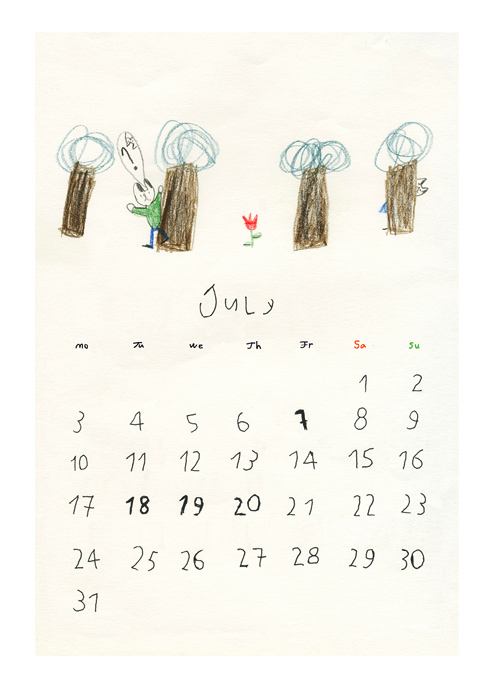 ?
July
Mo Tu We Th Fr Sa Su
1 2
3 4 5 6 7 8 9
10 11 12 13 14 15 16
17 18 19 20 21 22 23
24 25 26 27 28 29 30
31